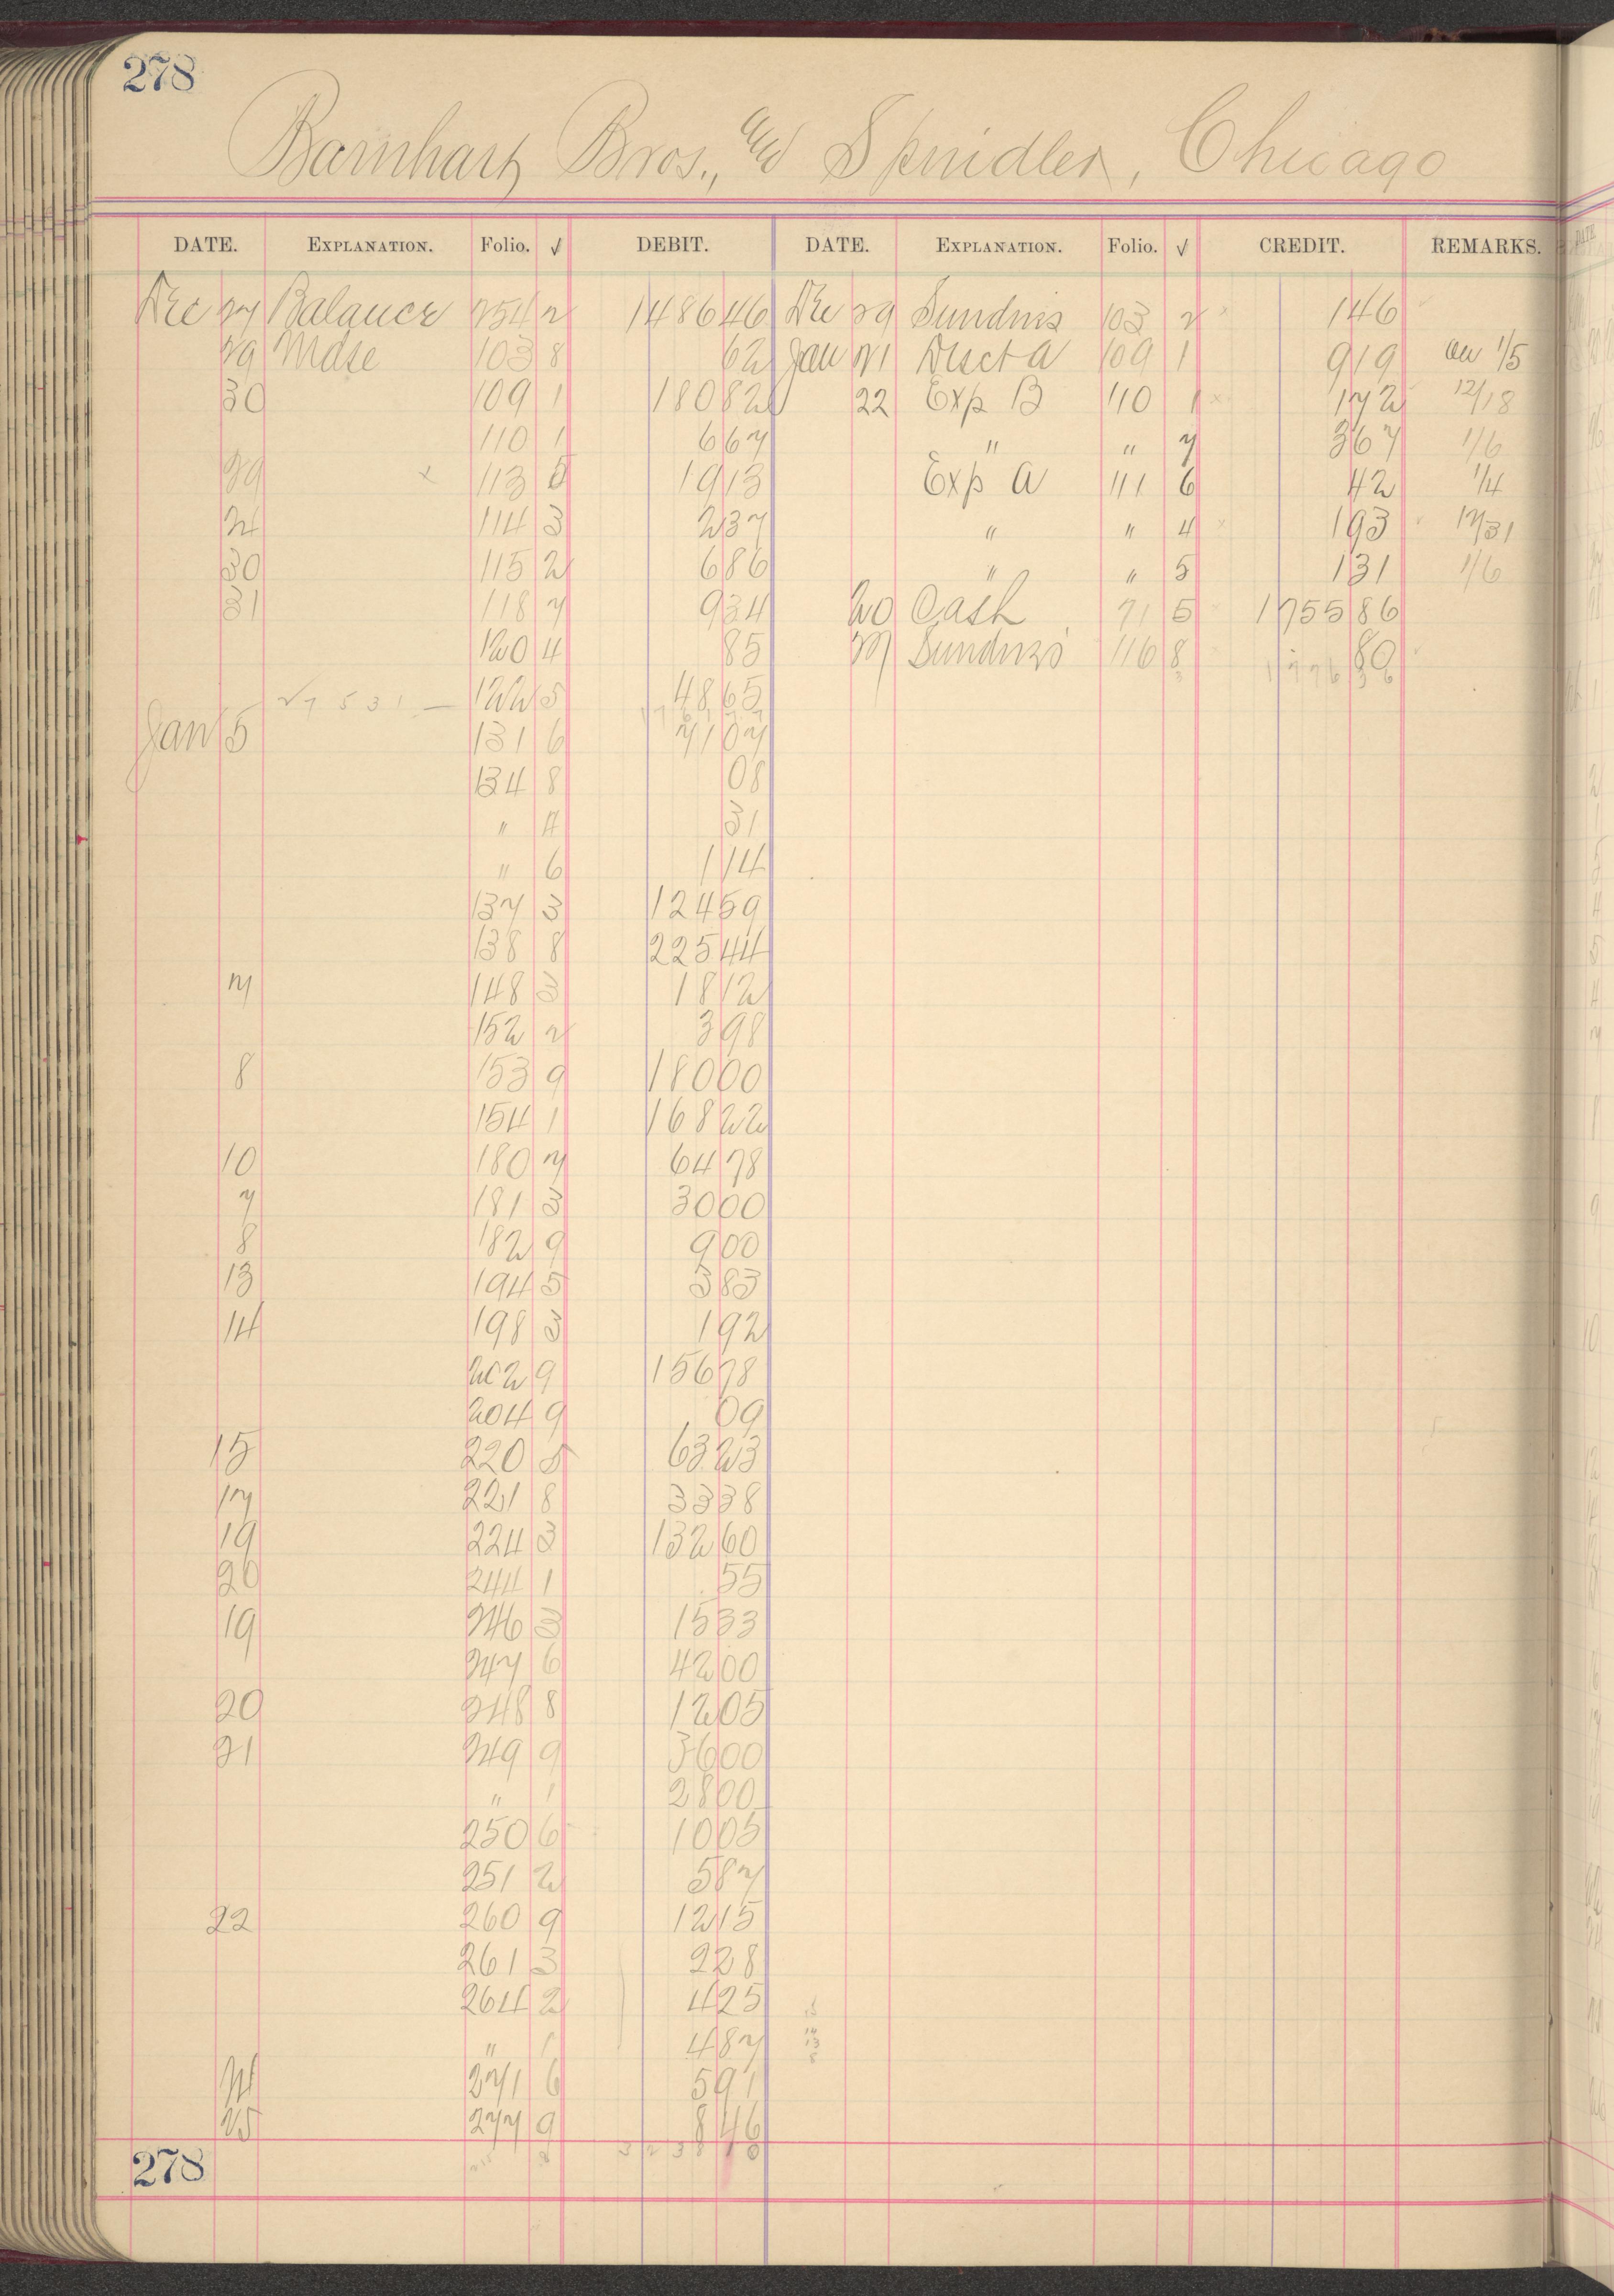 278
Barnhart Bros., and Spindler, Chicago
DATE. EXPLANATION. Folio. √ DEBIT. DATE. EXPLANATION. Folio. √ CREDIT. REMARKS.
Dec 27 Balance 254 2 1486 46 Dec 29 Sundries 103 2 1 46
29 Mdse 103 8 62 Jan 21 Disct A 109 1 9 19 au 1/5
30 109 1 180 82 22 Exp B 110 1 1 72 12/18
110 1 6 67 " " 7 3 67 1/6
29 113 5 19 13 Exp A 111 6 42 1/4
24 114 3 2 37 " " 4 1 93 12/31
30 115 2 6 86 " " 5 1 31 1/6
31 118 7 9 34 20 Cash 71 5 1755 86
120 4 85 27 Sundries 116 8 80
√7 531 — 122 5 48 65 1776 36
Jan 5 131 6 71 07
134 8 08
" 4 31
" 6 1 14
137 3 124 59
138 8 225 44
7 148 3 18 12
152 2 3 98
8 153 9 180 00
154 1 168 22
10 180 7 64 78
7 181 3 30 00
8 182 9 9 00
13 194 5 3 83
14 198 3 1 92
202 9 156 78
204 9 09
15 220 5 63 23
17 221 8 33 38
19 224 3 132 60
20 244 1 55
19 246 3 15 33
247 6 42 00
20 248 8 12 05
21 249 9 36 00
" 1 28 00
250 6 10 05
251 2 5 87
22 260 9 12 15
261 3 2 28
264 2 4 25
" 1 4 87
24 271 6 5 91
25 277 9 8 46
3238 10
278